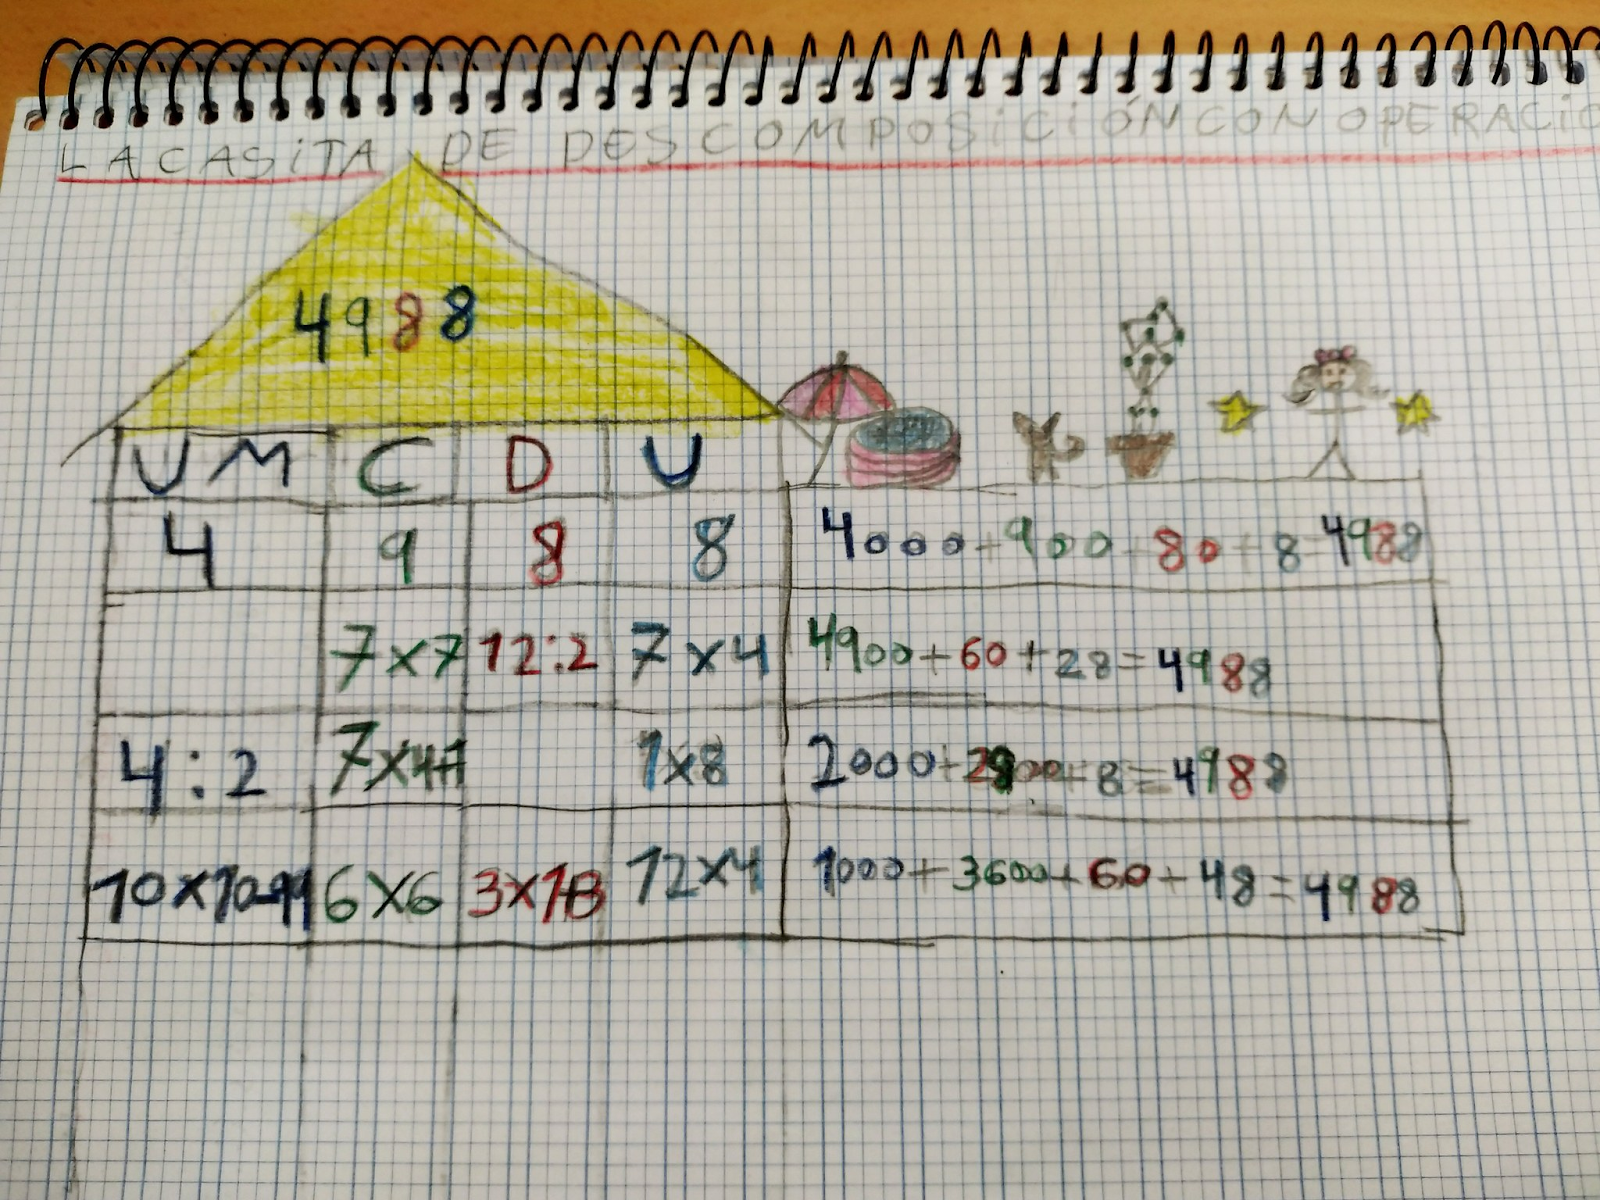 LA CASITA DE DESCOMPOSICIÓN CON OPERACIO
4988
UM C D U
4 9 8 8 4000+900+80+8 4988
7x7 12:2 7x4 4900+60+28=4988
4:2 7x4+1 1x8 2000+ +8=4988
6x6 12x4 1000+3600+60+48=4988